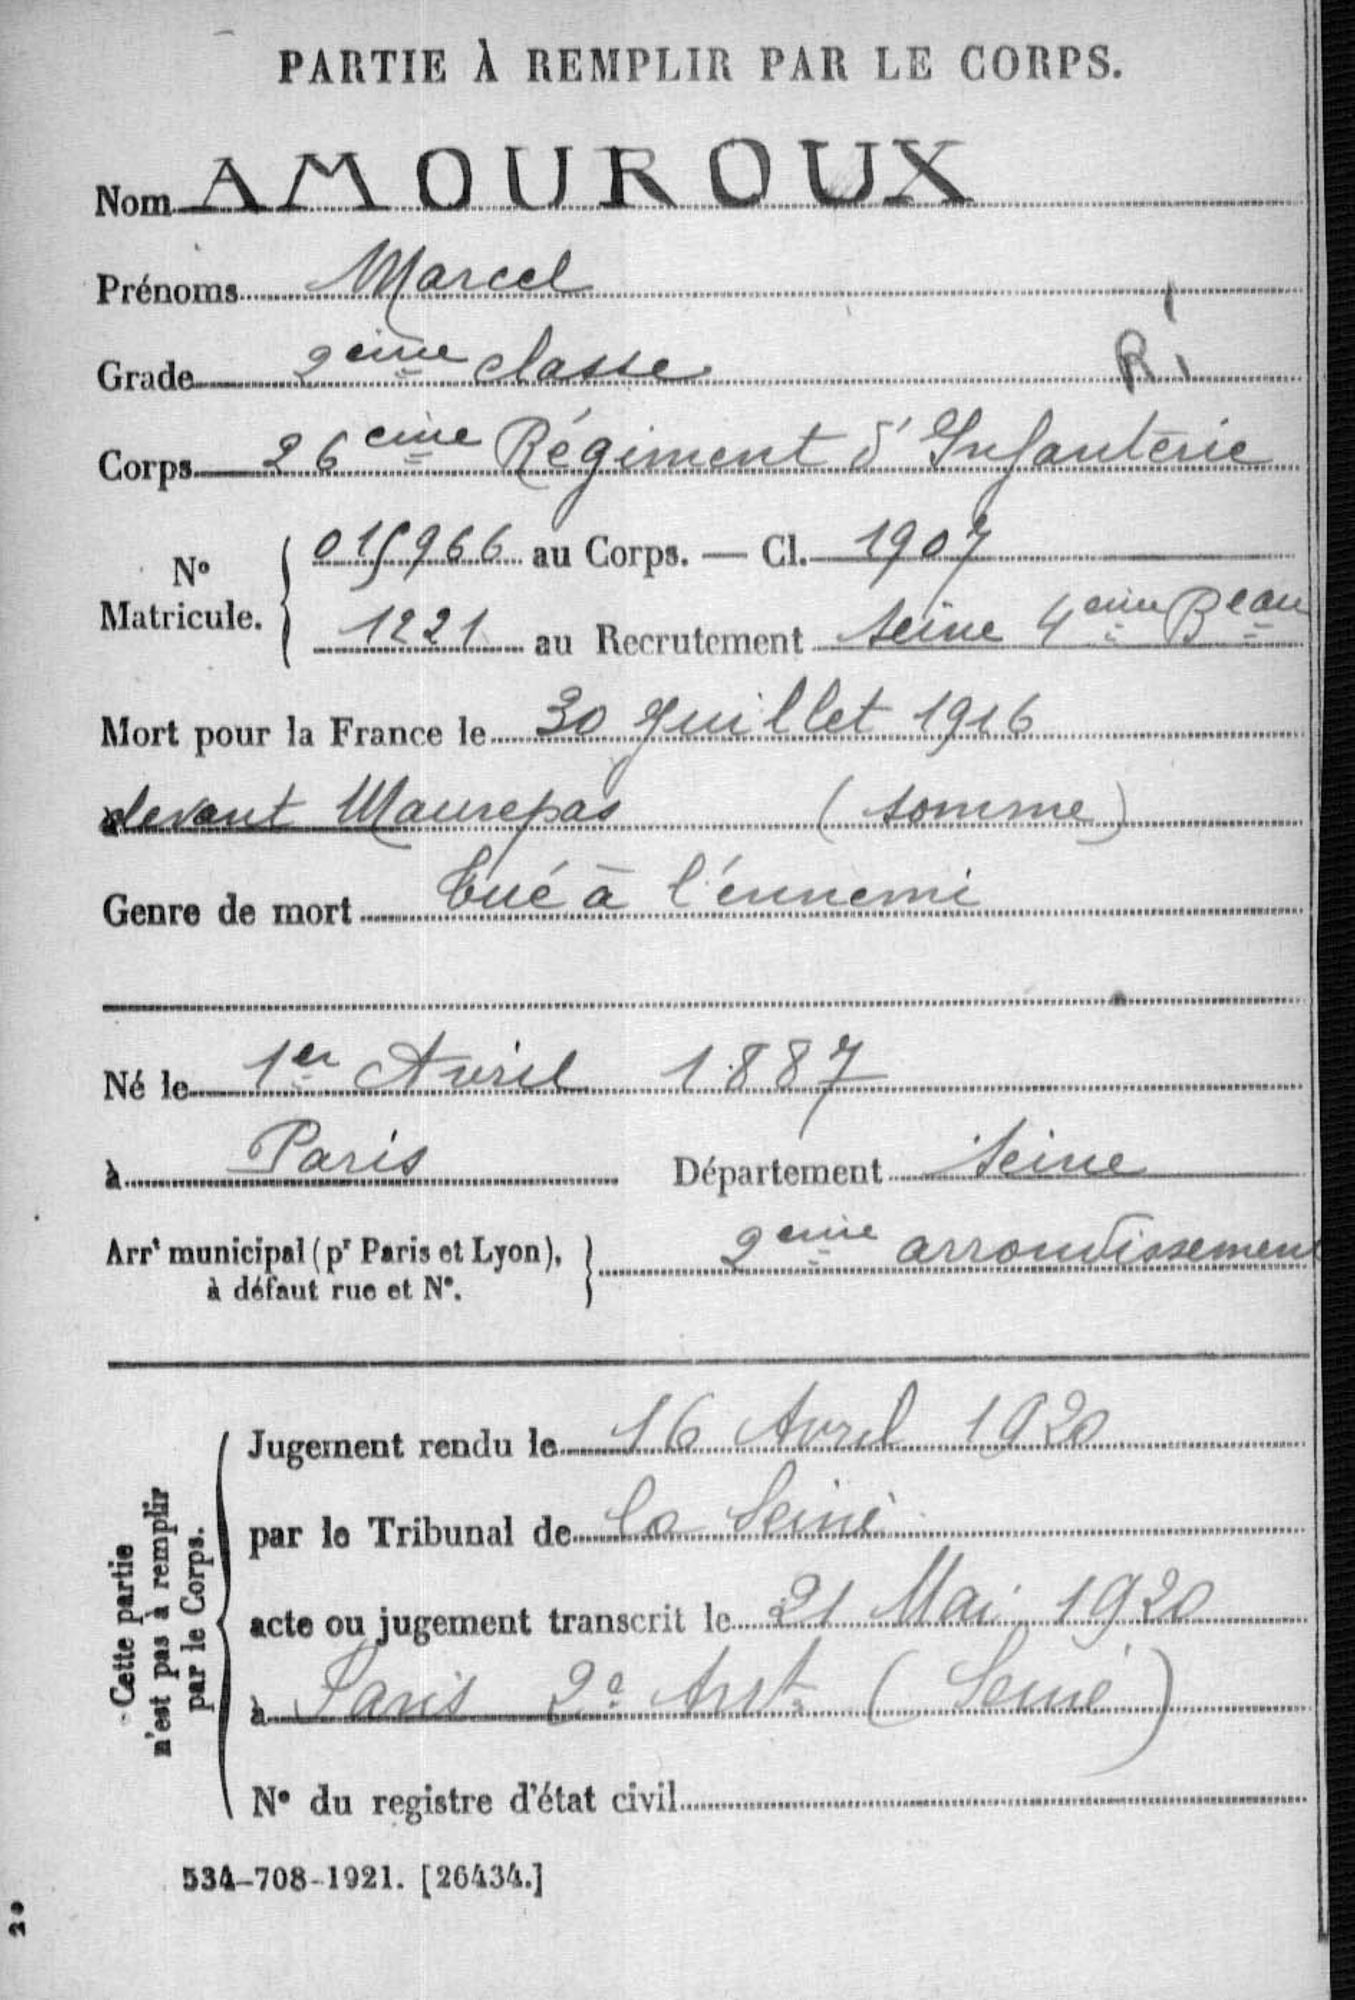 PARTIE À REMPLIR PAR LE CORPS.
Nom AMOUROUX
Prénoms Marcel
Grade 2ème classe
Ri
Corps 26ème Régiment d'Infanterie
No Matricule. 015966 au Corps. — Cl. 1907
1221 au Recrutement Seine 4ème Beau
Mort pour la France le 30 Juillet 1916
devant Maurepas (Somme)
Genre de mort tué à l'ennemi
Né le 1er Avril 1887
à Paris Département Seine
Arrt municipal (pr Paris et Lyon), 2ème arrondissement
à défaut rue et No.
Cette partie
n'est pas à remplir
par le Corps.
Jugement rendu le 16 Avril 1920
par le Tribunal de la Seine
acte ou jugement transcrit le 21 Mai 1920
à Paris 2e Arrt (Seine)
No du registre d'état civil
534-708-1921. [26434.]
20